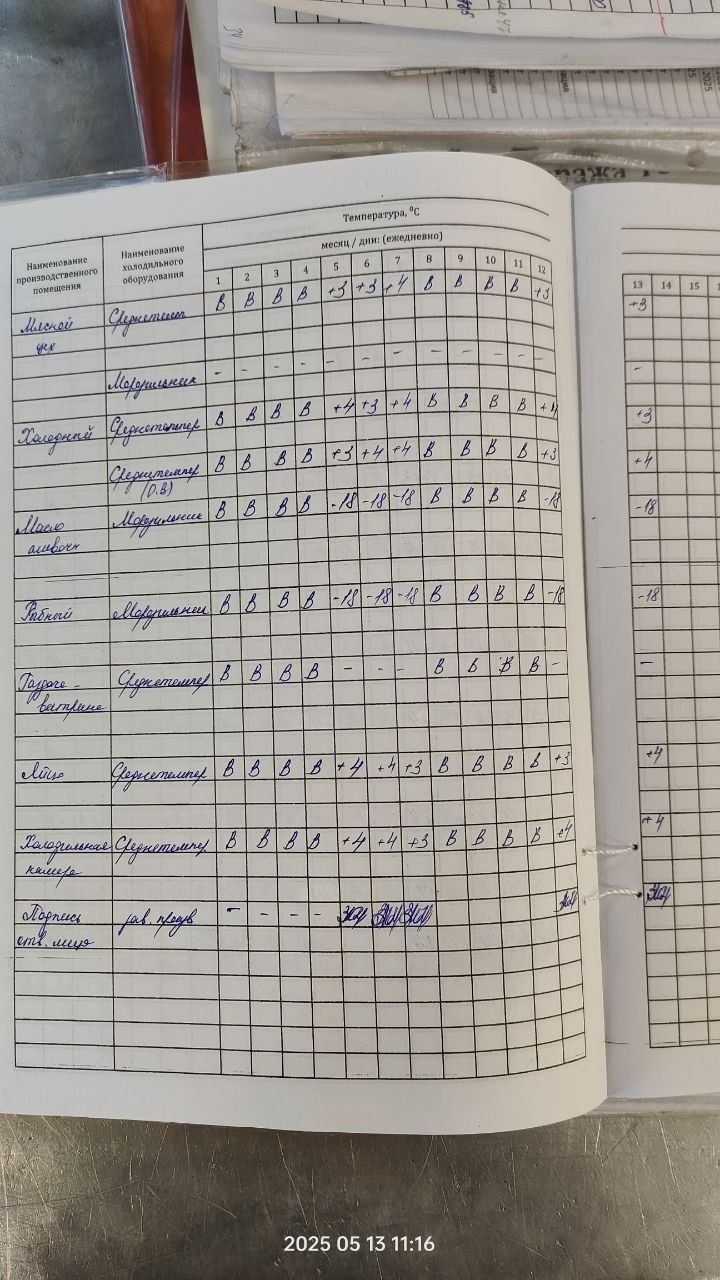 Температура, °С
месяц / дни: (ежедневно)
Наименование производственного помещения
Наименование холодильного оборудования
1 2 3 4 5 6 7 8 9 10 11 12
13 14 15
Мясной цех Среднетемп В В В В +3 +3 +4 В В В В +3 +3
Морозильник - - - - - - - - - - - - -
Холодный Среднетемпер В В В В +4 +3 +4 В В В В +4 +3
Среднетемпер (О.В) В В В В +3 +4 +4 В В В В +3 +4
Масло сливочн Морозильник В В В В -18 -18 -18 В В В В -18 -18
Рыбный Морозильник В В В В -18 -18 -18 В В В В -18 -18
витрина Среднетемпер В В В В - - - В В В В - -
Яйцо Среднетемпер В В В В +4 +4 +3 В В В В +3 +4
Холодильная камера Среднетемпер В В В В +4 +4 +3 В В В В +4 +4
Подпись отв. лица - - - -
2025 05 13 11:16